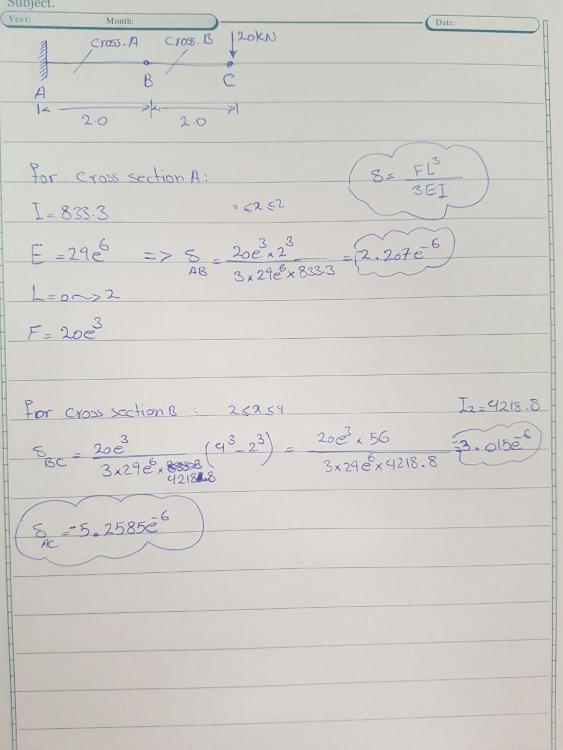 Subject.
Year: Month: Date:
Cross.A Cross.B 20KN
A B C
2.0 2.0
for cross section A:
δ = FL³ / 3EI
I = 833.3 0≤x≤2
E = 29e⁶ => δ_AB = 20e³×2³ / 3×29e⁶×833.3 = 2.207e⁻⁶
L = 0~>2
F = 20e³
for cross section B : 2≤x≤4 I₂=4218.8
δ_BC = 20e³ / 3×29e⁶×4218.8 (4³-2³) = 20e³×56 / 3×29e⁶×4218.8 = 3.015e⁻⁶
δ_AC = -5.2585e⁻⁶